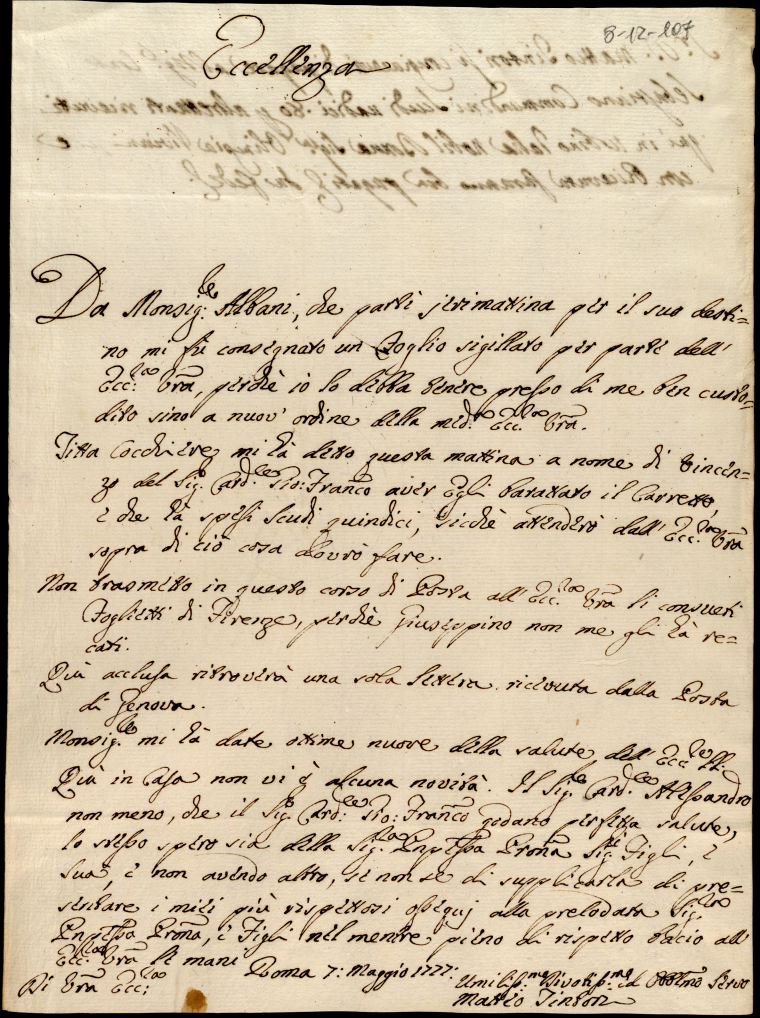 8-12-107
Eccellenza
Da Monsig:le Albani, che partì jerimattina per il suo desti=
no mi fù consegnato un Foglio sigillato per parte dell'
Ecc:za Vrā, perchè io lo debba tenere presso di me ben custo=
dito sino a nuov' ordine della med:ma Ecc:za Vrā.
Titta Cocchiere mi hà detto questa mattina a nome di Vincen=
zo del Sig: Card:le Gio: Franco aver Egli barattato il Carretto,
e che hà spesi scudi quindici, sicchè attenderò dall' Ecc:za Vrā
sopra di ciò cosa dovrò fare.
Non trasmetto in questo corso di Posta all' Ecc:za Vrā li consueti
Foglietti di Firenze, perchè Giuseppino non me gli hà re=
cati.
Quì acclusa ritroverà una sola lettera ricevuta dalla Posta
di Genova.
Monsig:le mi hà date ottime nuove della salute dell' Ecc:ze LL.
Quì in Casa non vi è alcuna novità. Il Sig: Card:le Alessandro
non meno, che il Sig: Card:le Gio: Franco godano perfetta salute,
lo stesso spero sia della Sig:ra Pnpessa Pronā Sig:ri Figli, e
Sua, e non avendo altro, se non se di supplicarla di pre=
sentare i miei più rispettosi ossequj alla prelodata Sig:ra
Pnpessa Pronā, e Figli nel mentre pieno di rispetto bacio all'
Ecc:za Vrā le mani Roma 7: Maggio 1777:
Di Vrā Ecc:za
Umiliss:mo Divotiss:mo ed Obblmo Servo
Matteo Tintori